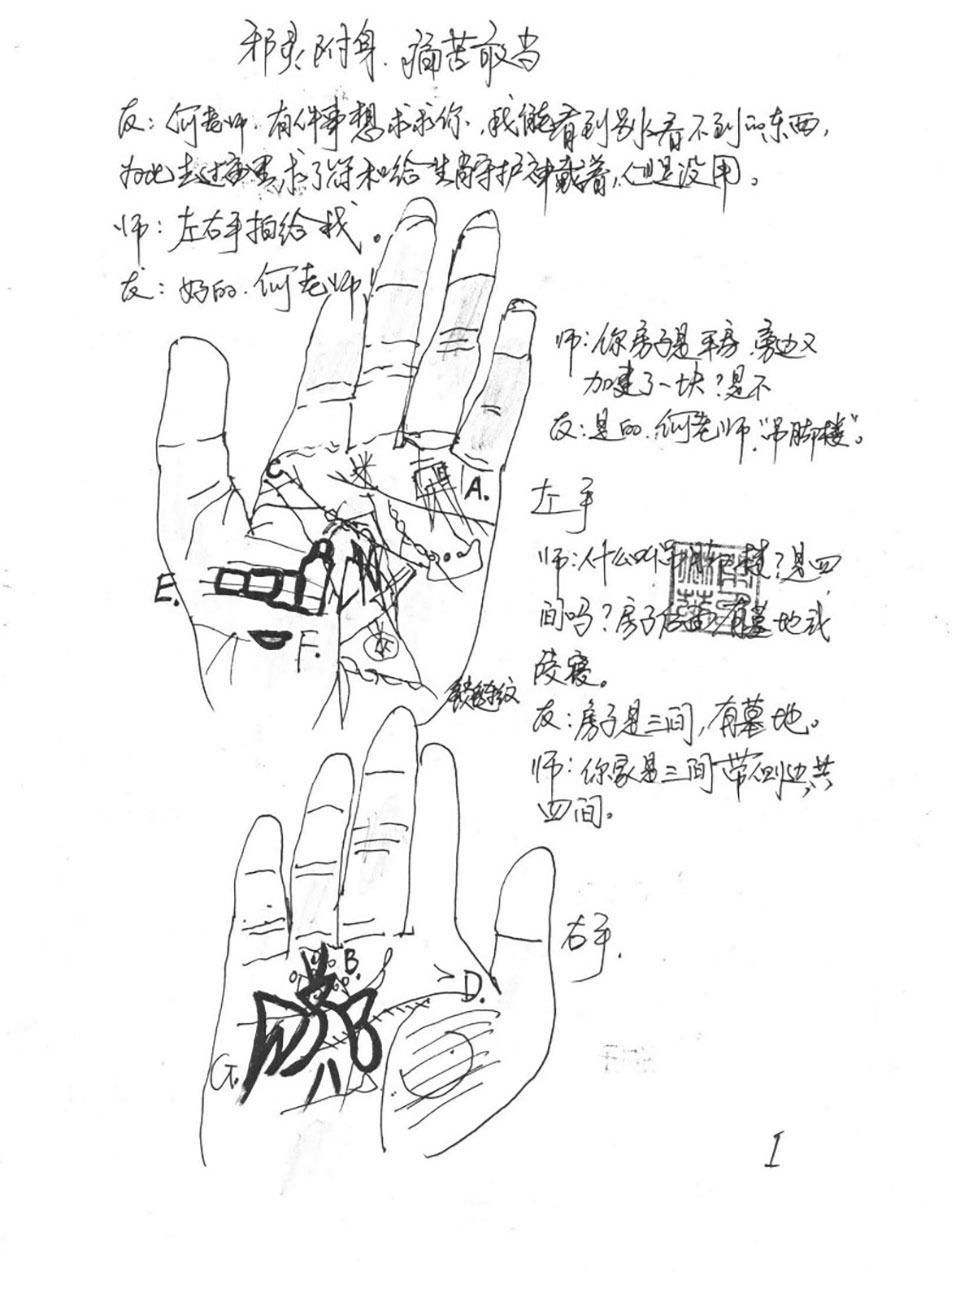 邪灵附身.痛苦敢当
友：何老师.有件事想求求你,我能看到别人看不到的东西,
为此去过庙里求了符和给生肖守护神戴着,但是没用。
师：左右手拍给我。
友：好的.何老师!
师：你房子是平房.旁边又
加建了一块?是不
友：是的.何老师."吊脚楼"。
左手
师：什么叫吊脚楼?是四
间吗?房子后面有墓地或
陵寝。
友：房子是三间,有墓地。
师：你家是三间带侧边,共
四间。
C.
A.
E.
F.
锁链纹
右手.
B.
D.
G.
I